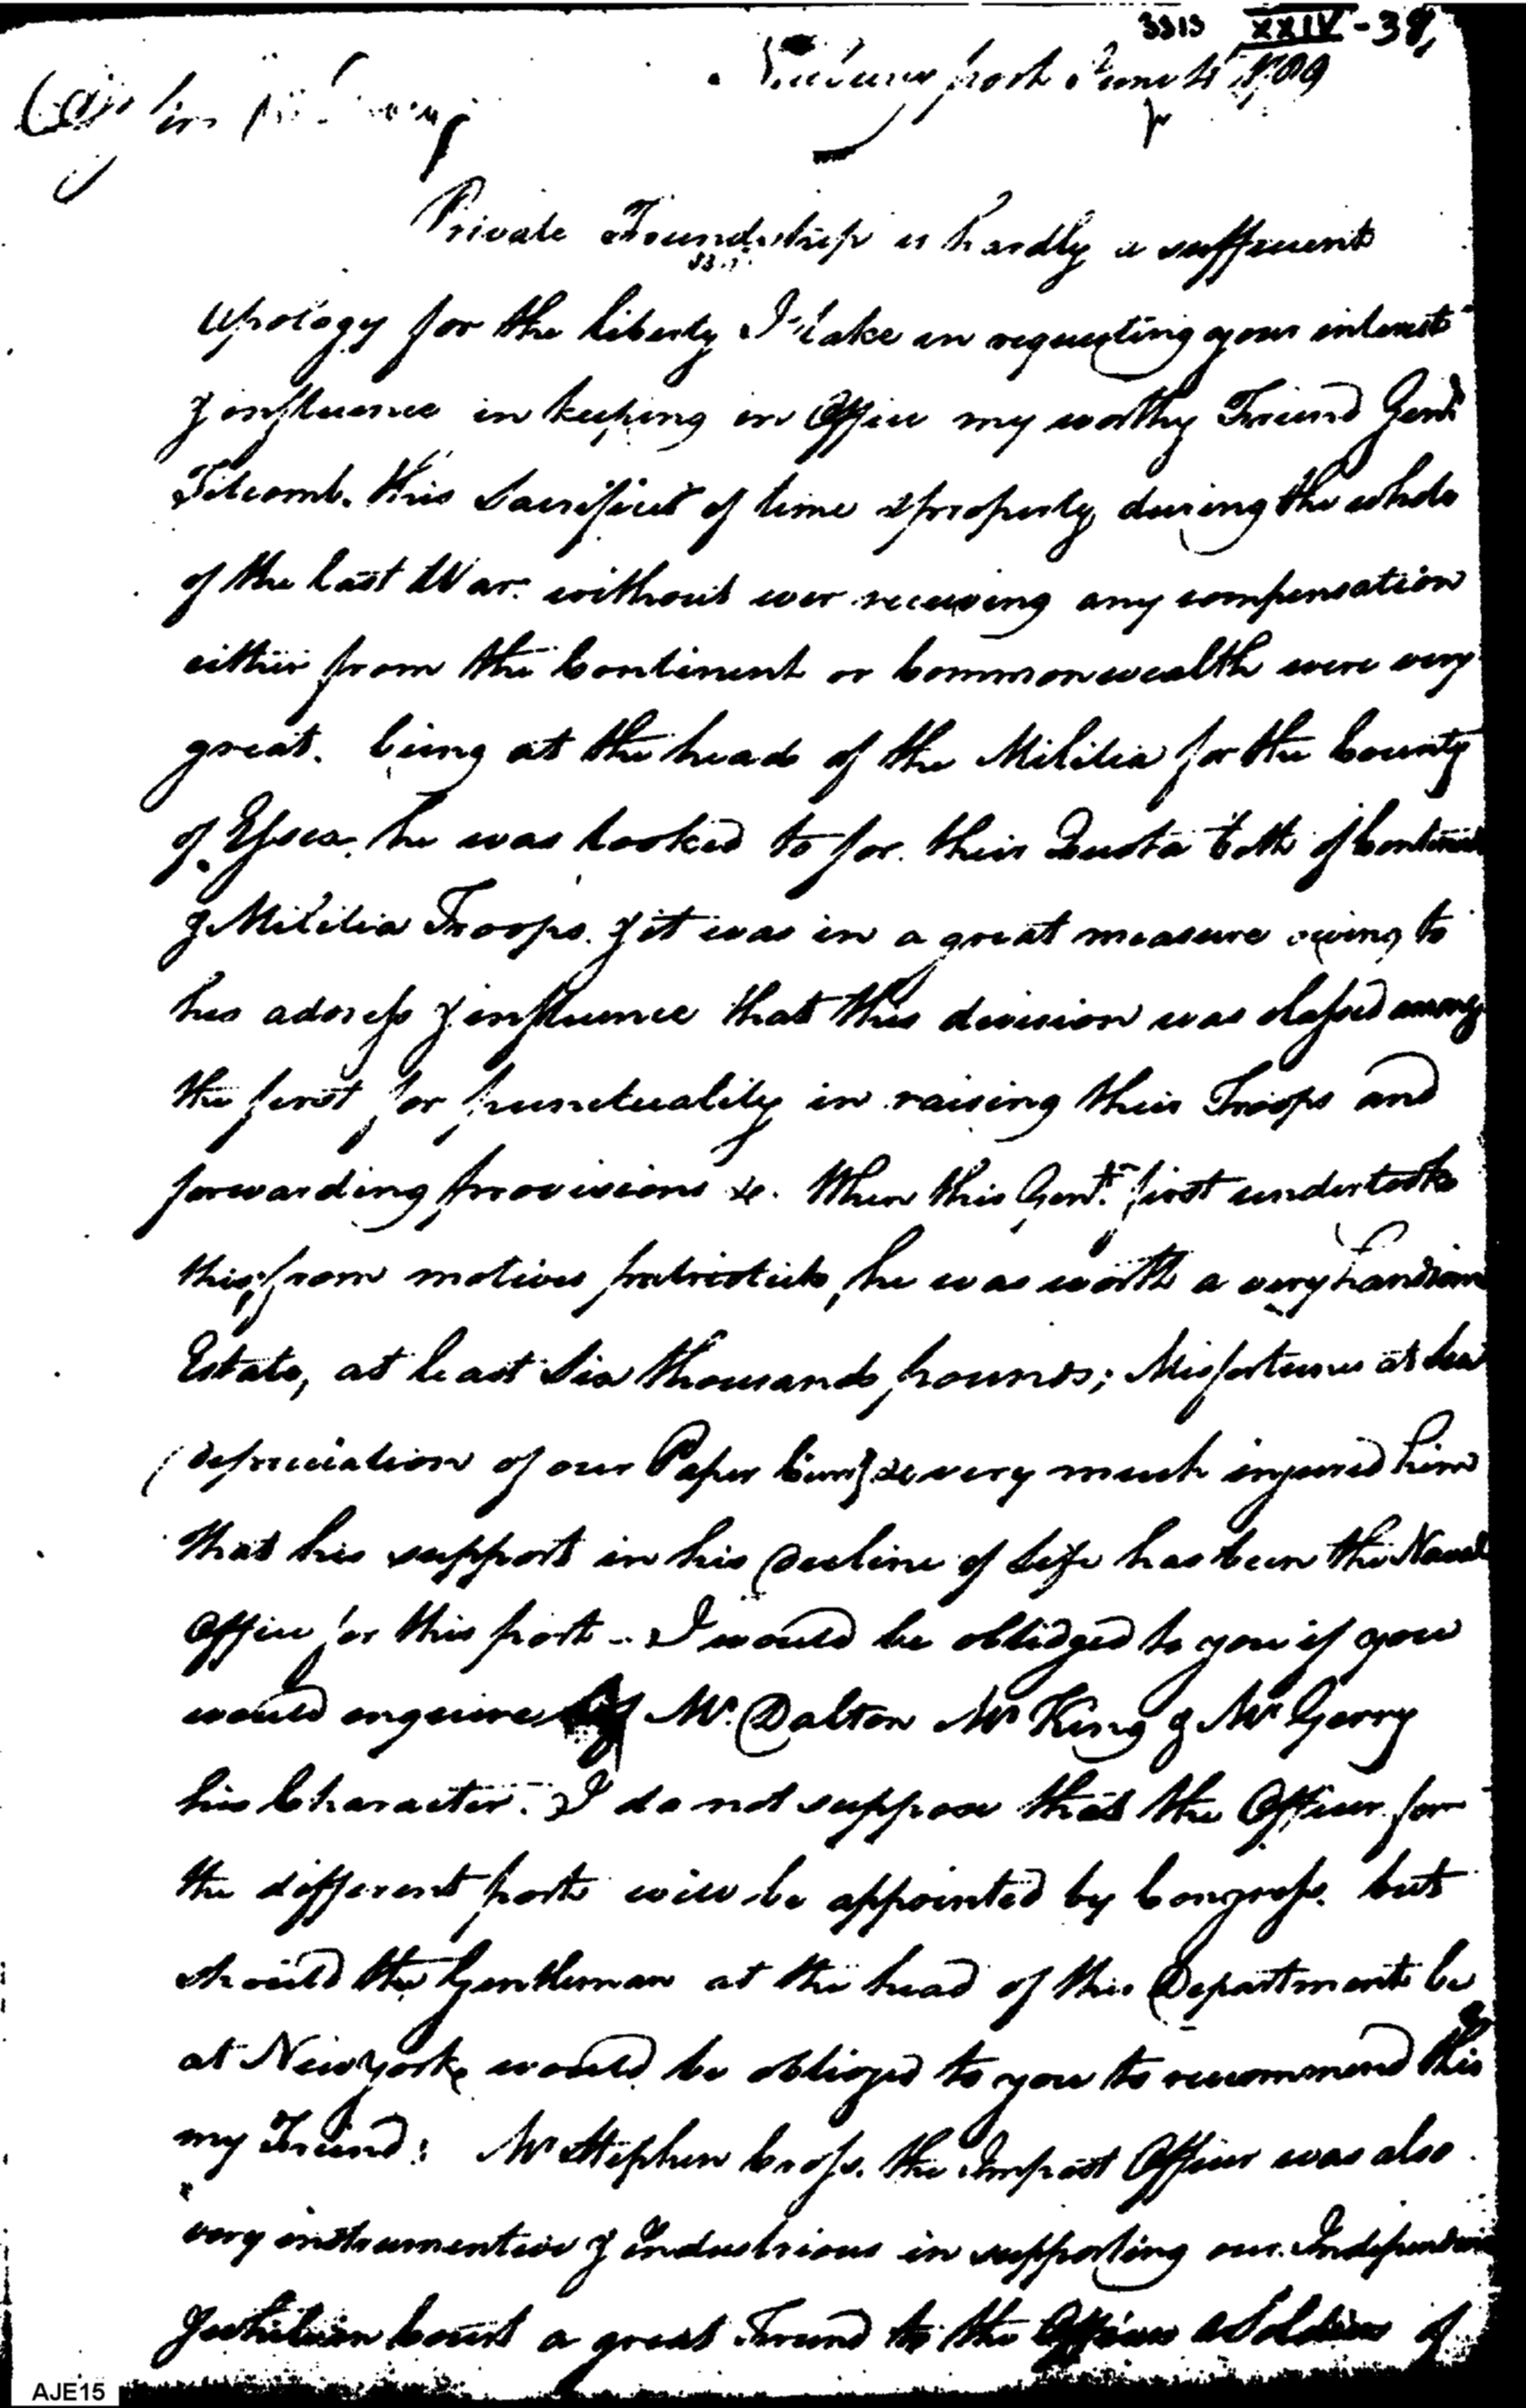 3313 XXIV-38,
Newbury port June 4 1789
Private Friendship is hardly a suffecient
Apology for the liberty I take in requesting your interest
& influence in keeping in Office my worthy Friend Genl
Titcomb. this Sacrifices of time & property during the whole
of the last War. without ever receiving any compensation
either from the Continent or Commonwealth were very
great. being at the head of the Militia for the County
of Essex, he was looked to for their Quota both of Continental
& Militia Troops. & it was in a great measure owing to
his address & influence that this division was classed among
the first for punctuality in raising their Troops and
forwarding provisions &c. When this Gent. first undertook
this, from motives patriotick, he was worth a very handsome
Estate, at least Six thousand pounds; Misfortunes at Sea
depreciation of our Paper &c very much injured him
that his support in his decline of Life has been the Naval
Office for this port - I would be oblidged to you if you
would enquire of Mr. Dalton Mr King & Mr Gerry
his Character. I do not suppose that the Officer for
the different ports will be appointed by Congress. but
should the Gentleman at the head of this Department be
at New york, would be obliged to you to recommend this
my Friend: Mr Stephen Cross. the Impost Officer was also
very instrumentive & Industrious in supporting our Independence
a great Friend to the Officers & Soldiers of
AJE15